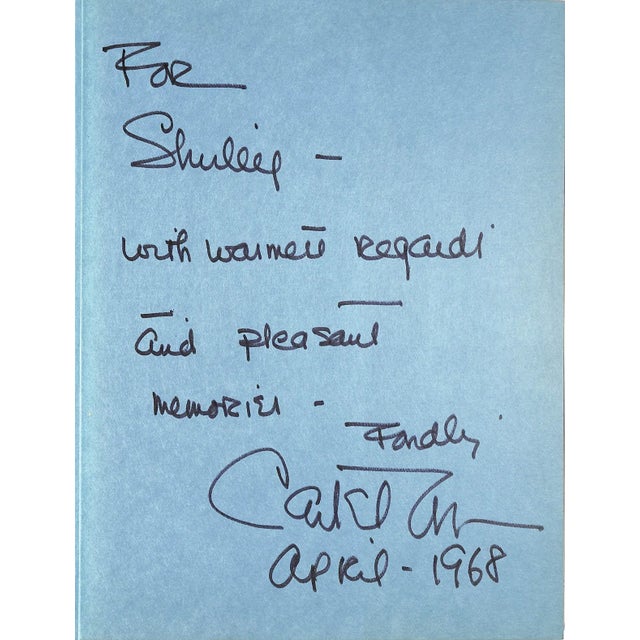 For
Shirley -
with warmest regards
and pleasant
memories -
Fondly
April - 1968